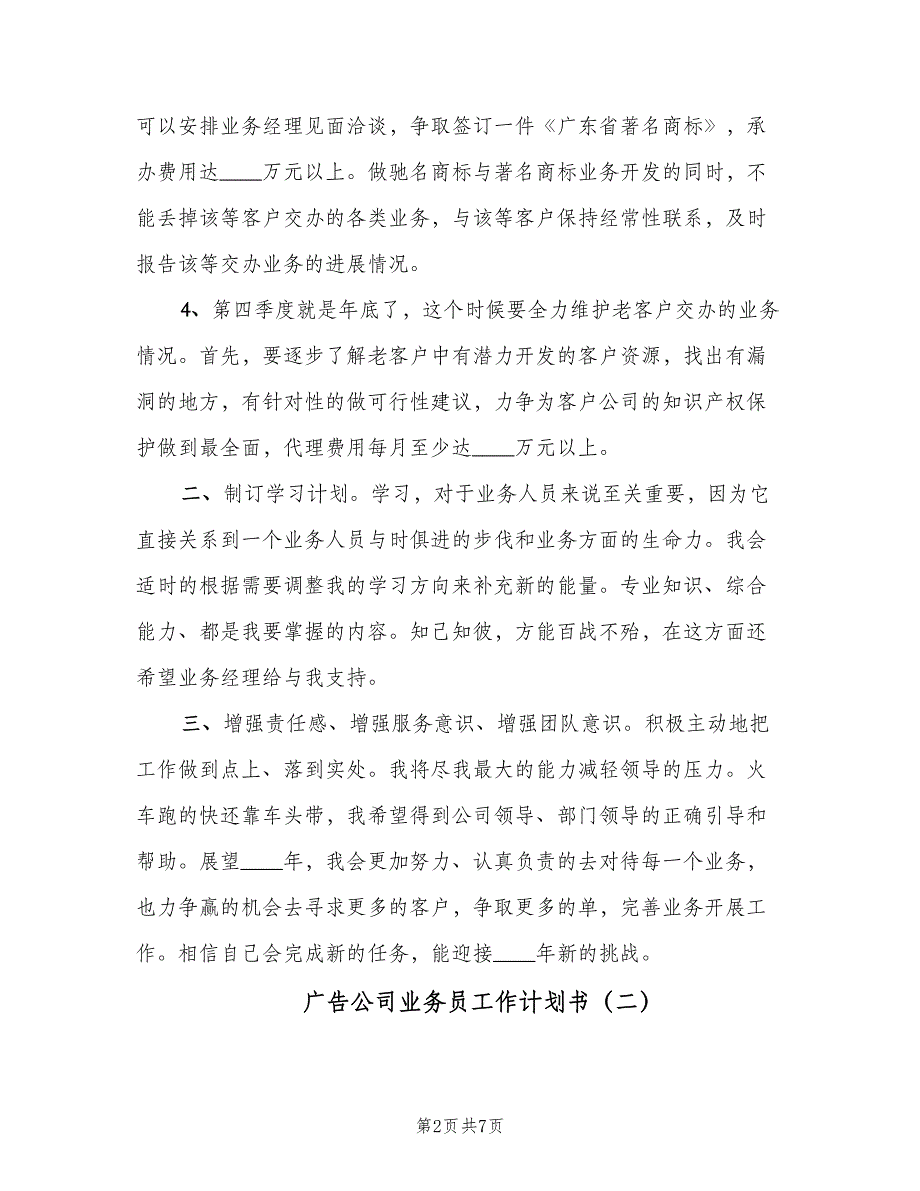 可以安排业务经理见面洽谈，争取签订一件《广东省著名商标》，承
办费用达____万元以上。做驰名商标与著名商标业务开发的同时，不
能丢掉该等客户交办的各类业务，与该等客户保持经常性联系，及时
报告该等交办业务的进展情况。
4、第四季度就是年底了，这个时候要全力维护老客户交办的业务
情况。首先，要逐步了解老客户中有潜力开发的客户资源，找出有漏
洞的地方，有针对性的做可行性建议，力争为客户公司的知识产权保
护做到最全面，代理费用每月至少达____万元以上。
二、制订学习计划。学习，对于业务人员来说至关重要，因为它
直接关系到一个业务人员与时俱进的步伐和业务方面的生命力。我会
适时的根据需要调整我的学习方向来补充新的能量。专业知识、综合
能力、都是我要掌握的内容。知己知彼，方能百战不殆，在这方面还
希望业务经理给与我支持。
三、增强责任感、增强服务意识、增强团队意识。积极主动地把
工作做到点上、落到实处。我将尽我最大的能力减轻领导的压力。火
车跑的快还靠车头带，我希望得到公司领导、部门领导的正确引导和
帮助。展望____年，我会更加努力、认真负责的去对待每一个业务，
也力争赢的机会去寻求更多的客户，争取更多的单，完善业务开展工
作。相信自己会完成新的任务，能迎接____年新的挑战。
广告公司业务员工作计划书（二）
第2页共7页